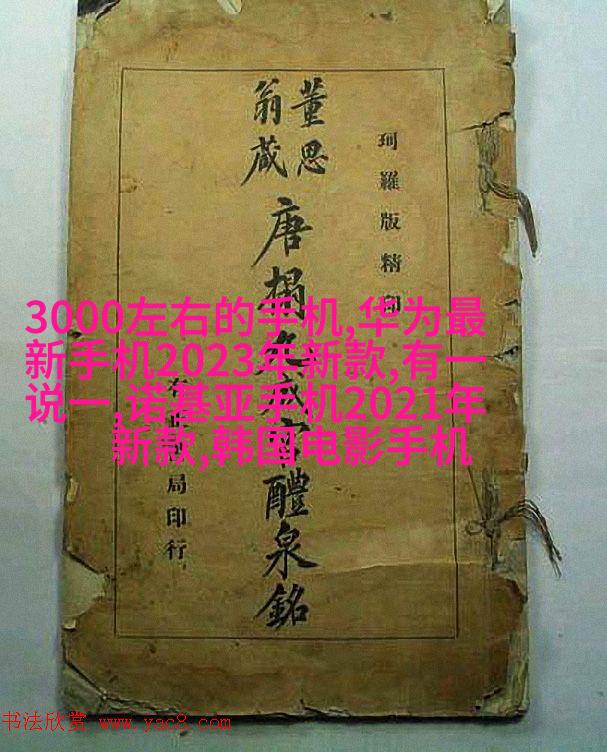 珂羅版精印
董思
翁藏
唐搨成宮醴泉銘
有局印行
3000左右的手机,华为最
新手机2023年新款,有一
说一,诺基亚手机2021年
新款,韩国电影手机
书法欣赏 www.yac8.com